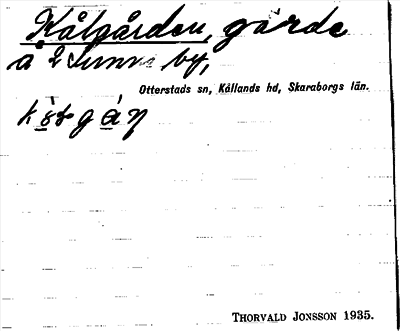 Kålgården, gärde
å
by,
Otterstads sn, Kållands hd, Skaraborgs län.
THORVALD JONSSON 1935.